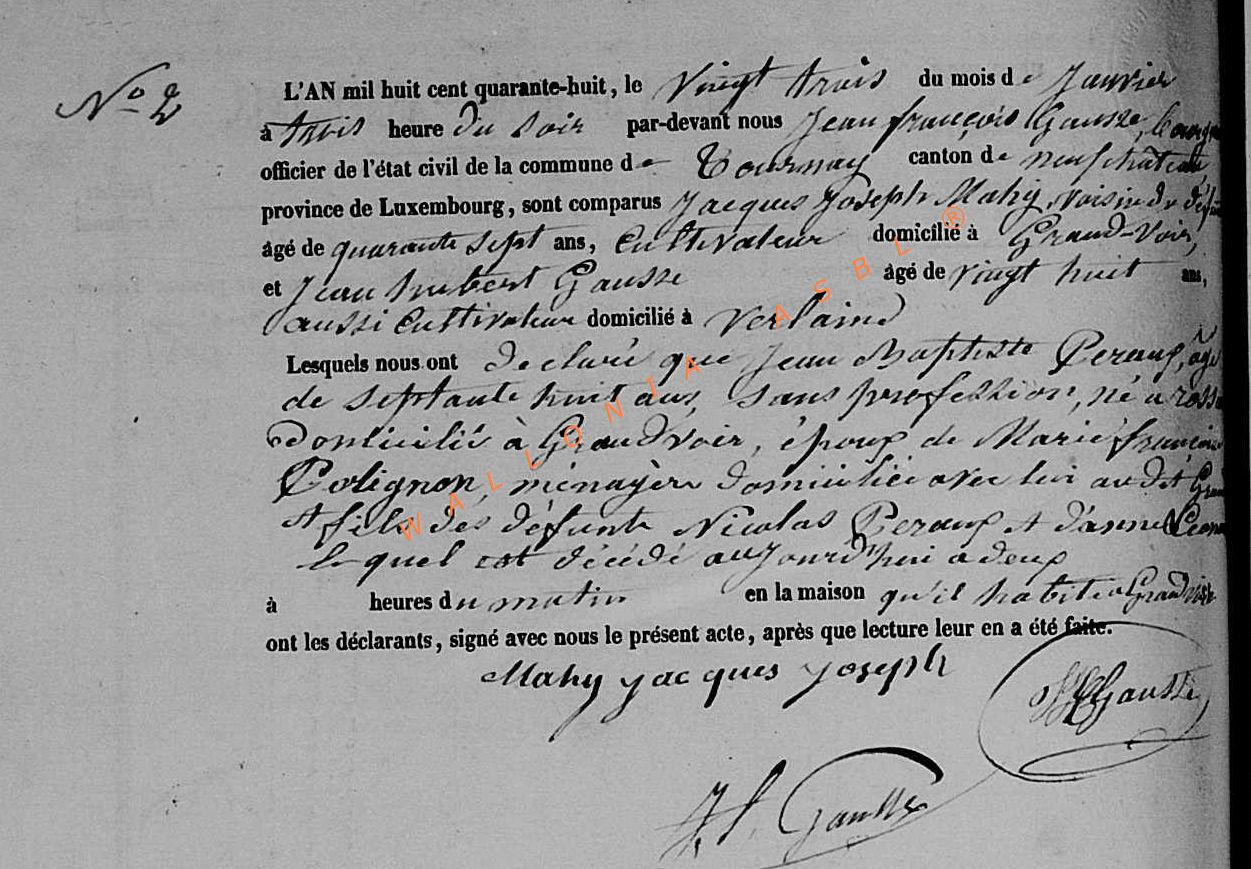 No 2
L'AN mil huit cent quarante-huit, le Vingt trois du mois de Janvier
à trois heure du soir par-devant nous Jean françois Gausse,
officier de l'état civil de la commune de Tournay canton de neufchateau
province de Luxembourg, sont comparus Jacques Joseph Mahy, voisin du
âgé de quarante sept ans, Cultivateur domicilié à Grand-Voir,
et Jean hubert Gausse âgé de vingt huit ans,
aussi Cultivateur domicilié à Verlaine
Lesquels nous ont declaré que Jean Baptiste Peraux, âgé
de septante huit ans, sans profession, né a
domicilié à Grandvoir, époux de Marie
Polignon, ménagère domiciliée avec lui audit
et fils des défunts Nicolas Peraux et d'anne
lequel est décédé aujourd'hui a deux
à heures du matin en la maison qu'il habite a Grandvoir
ont les déclarants, signé avec nous le présent acte, après que lecture leur en a été faite.
Mahy jacques joseph
Gausse
J. f. Gausse
WALLONIA ASBL ®